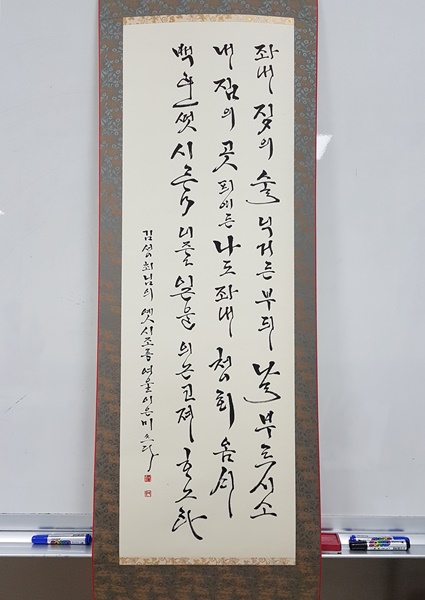 자내 집의 술 닉거든 부듸 날 부르시소
내 집의 곳 픠여든 나도 자내 청회옴새
백년덧 시름 니즐 일을 의논코져 하노라
김성최님의 옛시조 중 여울 이은미 쓰다